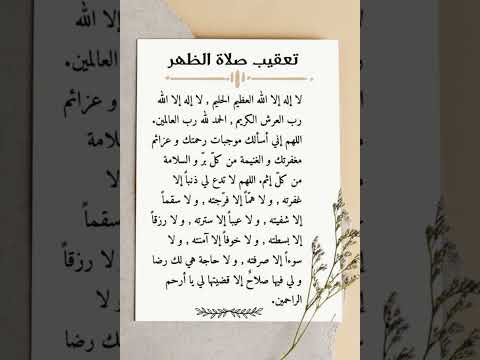 تعقيب صلاة الظهر
لا إله إلا الله العظيم الحليم , لا إله إلا الله
رب العرش الكريم , الحمد لله رب العالمين.
اللهم إني أسألك موجبات رحمتك و عزائم
مغفرتك و الغنيمة من كلّ برّ و السلامة
من كلّ إثم. اللهم لا تدع لي ذنباً إلا
غفرته , و لا همّاً إلا فرّجته , و لا سقماً
إلا شفيته , و لا عيباً إلا سترته , و لا رزقاً
إلا بسطته , و لا خوفاً إلا آمنته , و لا
سوءاً إلا صرفته , و لا حاجة هي لك رضا
و لي فيها صلاحٌ إلا قضيتها لي يا أرحم
الراحمين.